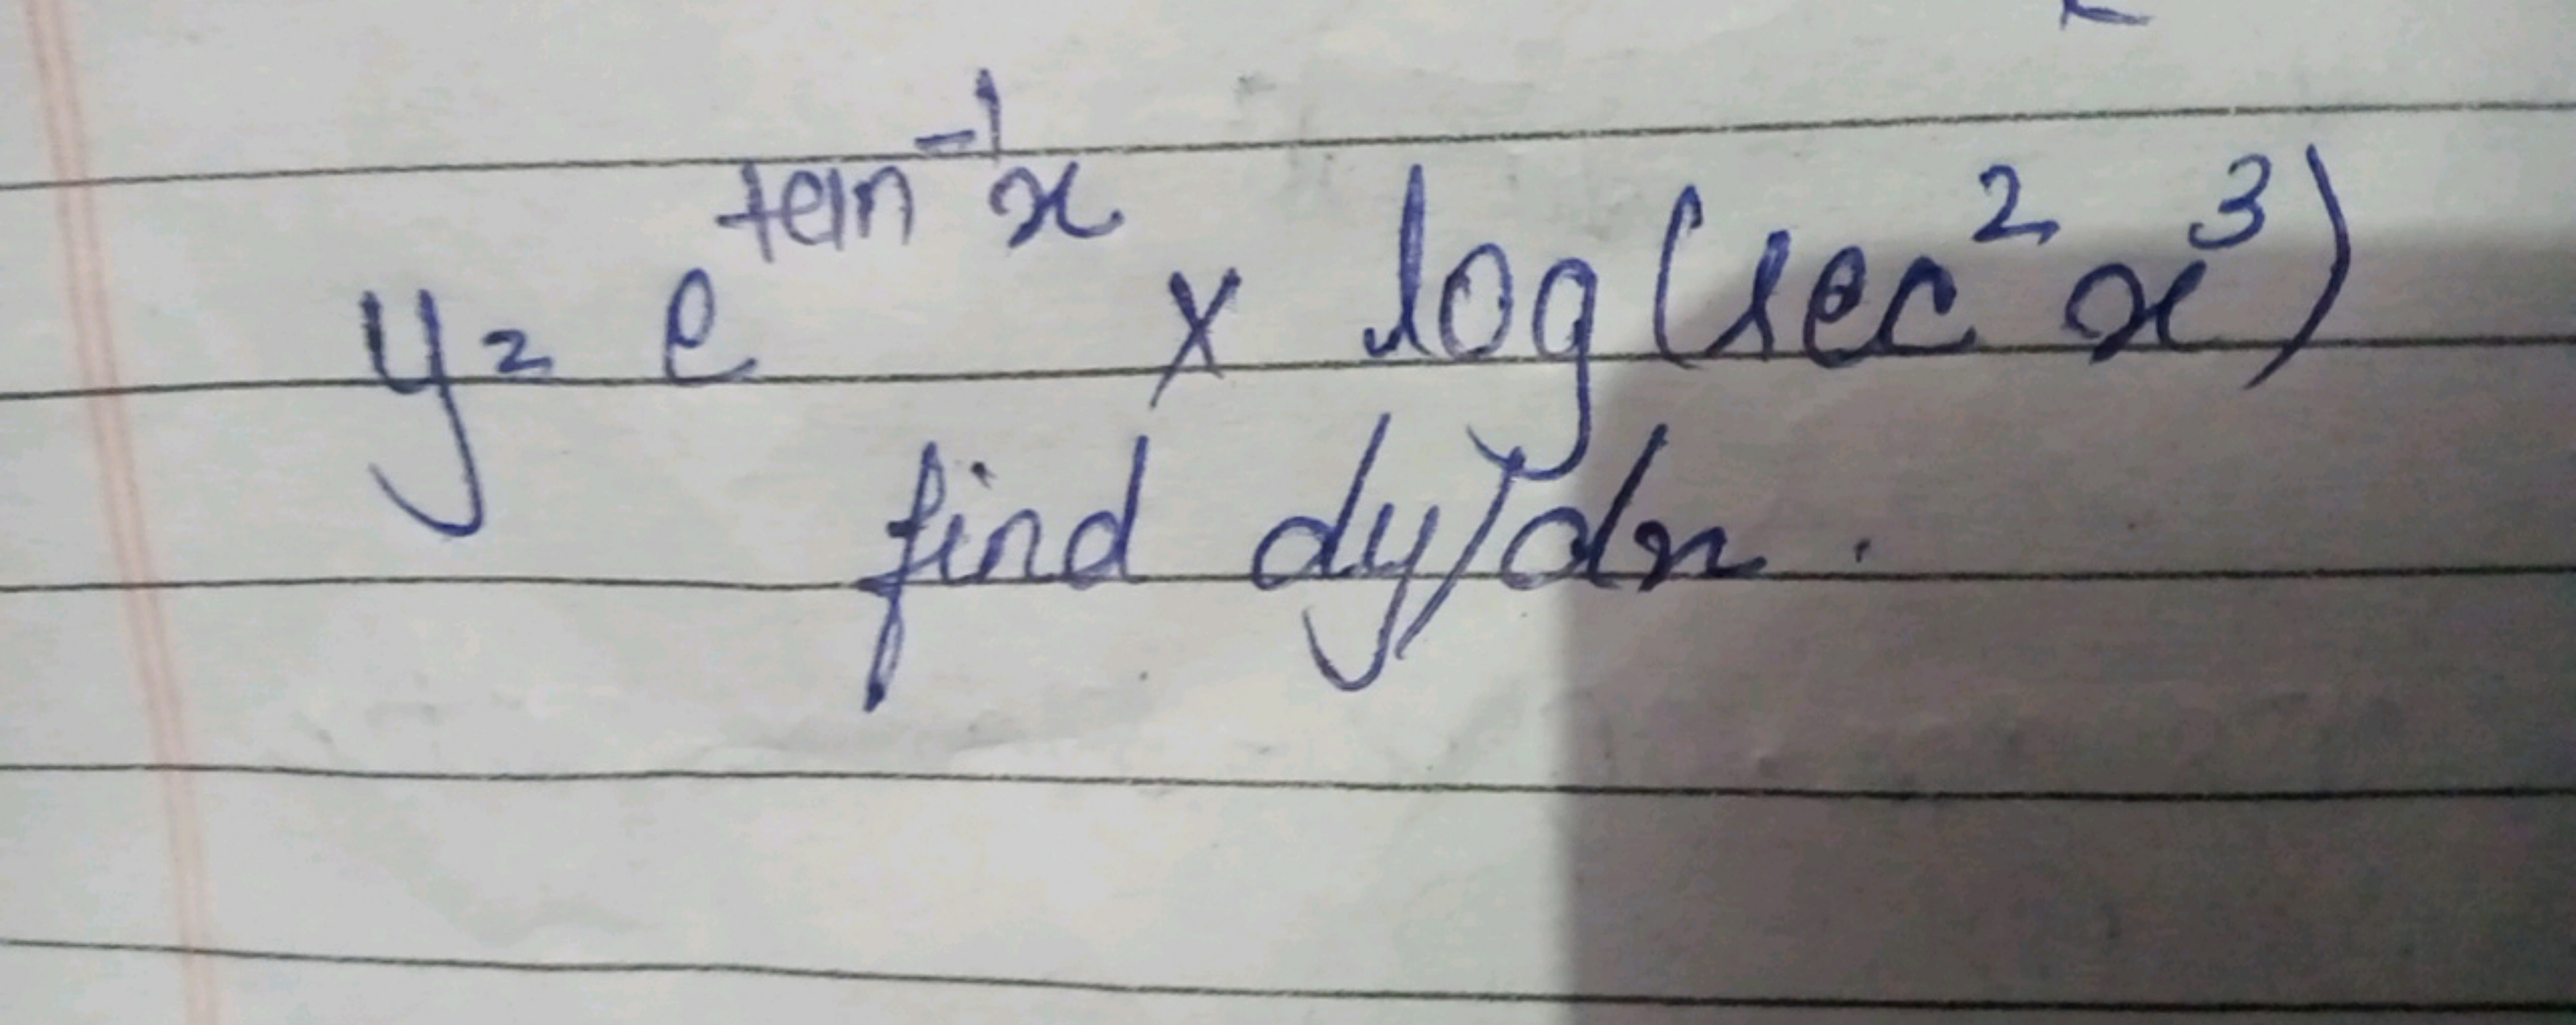 y = e^{tan^{-1} x} × log(sec^2 x^3)
find dy/dx.